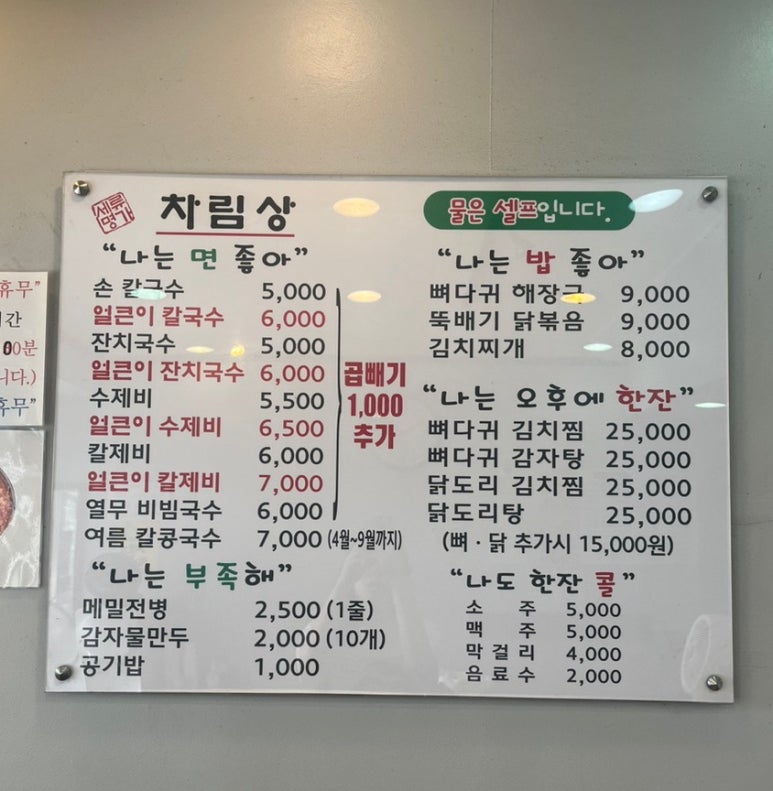 휴무"
시간
00분
니다.)
휴무"
세류
명가
차림상
물은 셀프입니다.
"나는 면 좋아"
손 칼국수 5,000
얼큰이 칼국수 6,000
잔치국수 5,000
얼큰이 잔치국수 6,000
수제비 5,500
얼큰이 수제비 6,500
칼제비 6,000
얼큰이 칼제비 7,000
열무 비빔국수 6,000
곱빼기
1,000
추가
여름 칼콩국수 7,000 (4월~9월까지)
"나는 부족해"
메밀전병 2,500 (1줄)
감자물만두 2,000 (10개)
공기밥 1,000
"나는 밥 좋아"
뼈다귀 해장국 9,000
뚝배기 닭볶음 9,000
김치찌개 8,000
"나는 오후에 한잔"
뼈다귀 김치찜 25,000
뼈다귀 감자탕 25,000
닭도리 김치찜 25,000
닭도리탕 25,000
(뼈·닭 추가시 15,000원)
"나도 한잔 콜"
소 주 5,000
맥 주 5,000
막걸리 4,000
음료수 2,000